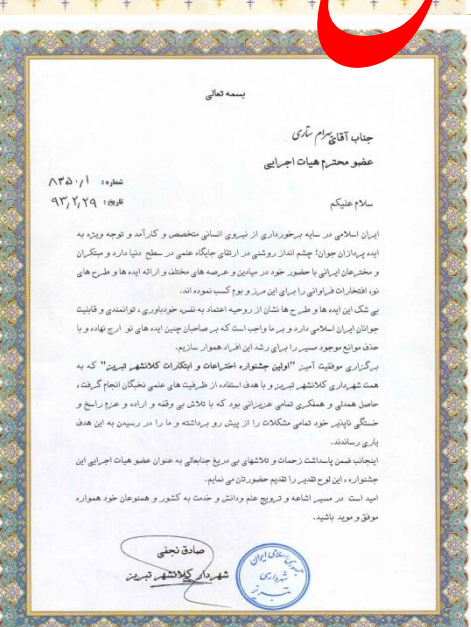 بسمه تعالی
جناب آقای بهرام ستاری
عضو محترم هیات اجرایی
شماره: ۸۳۵۰/۱
تاریخ: ۹۳/۲/۲۹
سلام علیکم
ایران اسلامی در سایه برخورداری از نیروی انسانی متخصص و کارآمد و توجه ویژه به
ایده پردازان جوان؛ چشم انداز روشنی در ارتقای جایگاه علمی در سطح دنیا دارد و مبتکران
و مخترعان ایرانی با حضور خود در میادین و عرصه های مختلف و ارائه ایده ها و طرح های
نو، افتخارات فراوانی را برای این مرز و بوم کسب نموده اند.
بی شک این ایده ها و طرح ها نشان از روحیه اعتماد به نفس، خودباوری، توانمندی و قابلیت
جوانان ایران اسلامی دارد و بر ما واجب است که بر صاحبان چنین ایده های نو ارج نهاده و با
حذف موانع موجود مسیر را برای رشد این افراد هموار سازیم.
برگزاری موفقیت آمیز "اولین جشنواره اختراعات و ابتکارات کلانشهر تبریز" که به
همت شهرداری کلانشهر تبریز و با هدف استفاده از ظرفیت های علمی نخبگان انجام گرفت،
حاصل همدلی و همفکری تمامی عزیزانی بود که با تلاش بی وقفه و اراده و عزم راسخ و
خستگی ناپذیر خود تمامی مشکلات را از پیش رو برداشته و ما را در رسیدن به این هدف
یاری رساندند.
اینجانب ضمن پاسداشت زحمات و تلاشهای بی دریغ جنابعالی به عنوان عضو هیات اجرایی این
جشنواره، این لوح تقدیر را تقدیم حضورتان می نمایم.
امید است در مسیر اشاعه و ترویج علم ودانش و خدمت به کشور و همنوعان خود همواره
موفق و موید باشید.
صادق نجفی
شهردار کلانشهر تبریز
جمهوری اسلامی ایران
شهرداری
تبریز